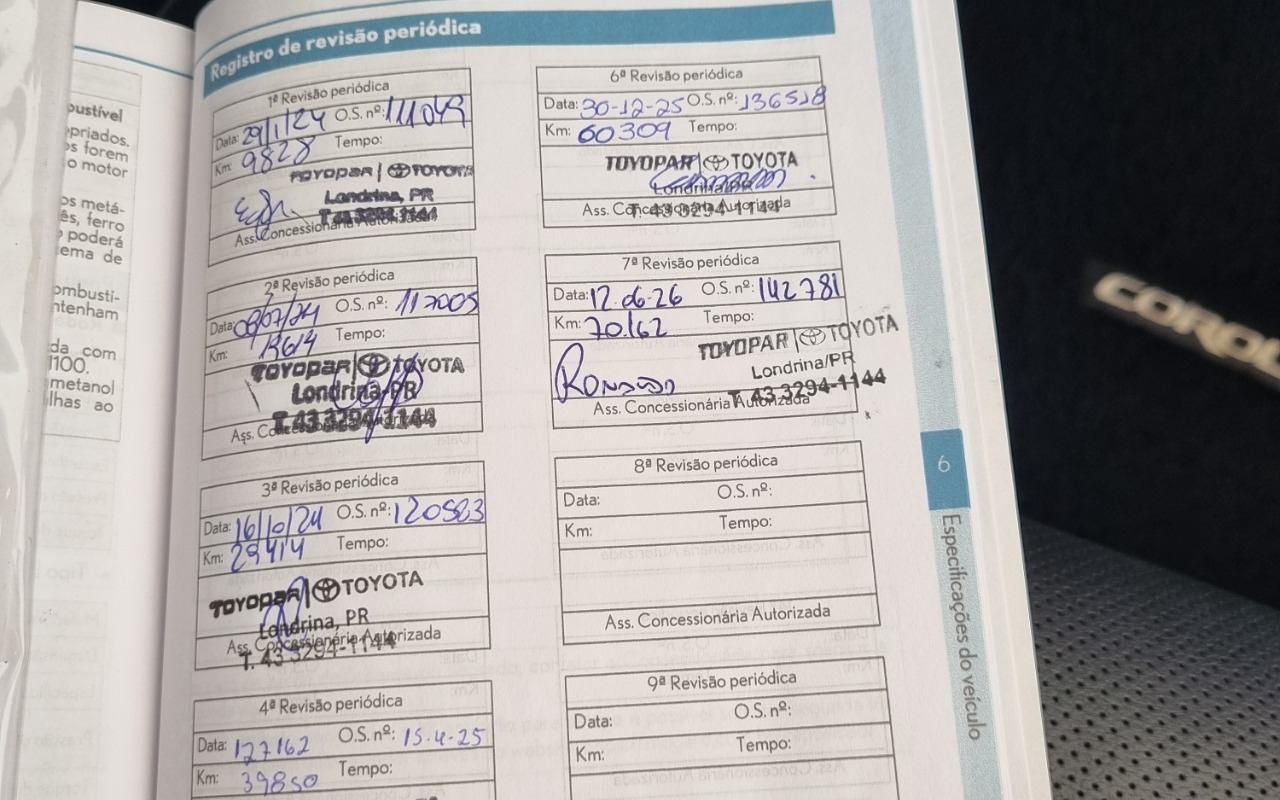 Registro de revisão periódica
1ª Revisão periódica
Data: 29/1/24 O.S. nº: 111049
Km: 9828 Tempo:
TOYOPAR TOYOTA
Londrina, PR
T. 43 3294-1144
Ass. Concessionária Autorizada
2ª Revisão periódica
Data: 08/07/24 O.S. nº: 117005
Km: Tempo:
TOYOPAR TOYOTA
Londrina, PR
T. 43 3294-1144
3ª Revisão periódica
Data: 16/10/24 O.S. nº: 120583
Km: 29414 Tempo:
TOYOPAR TOYOTA
Londrina, PR
Ass. Concessionária Autorizada
T. 43 3294-1144
4ª Revisão periódica
Data: 127162 O.S. nº: 15-4-25
Km: 39850 Tempo:
6ª Revisão periódica
Data: 30-12-25 O.S. nº: 136518
Km: 60309 Tempo:
TOYOPAR TOYOTA
Londrina/PR
Ass. Concessionária Autorizada
T. 43 3294-1144
7ª Revisão periódica
Data: 12.06.26 O.S. nº: 142781
Km: 70.162 Tempo:
TOYOPAR TOYOTA
Londrina/PR
T. 43 3294-1144
Ass. Concessionária Autorizada
8ª Revisão periódica
Data: O.S. nº:
Km: Tempo:
Ass. Concessionária Autorizada
9ª Revisão periódica
Data: O.S. nº:
Km: Tempo:
6
Especificações do veículo
priados.
s forem
o motor
os metá-
ês, ferro
poderá
ema de
ombustí-
ntenham
da com
1100.
metanol
lhas ao
COROL